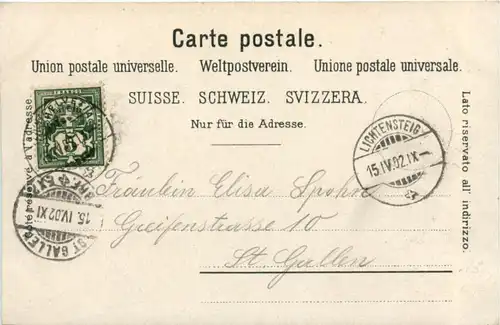 Carte postale.
Union postale universelle. Weltpostverein. Unione postale universale.
SUISSE. SCHWEIZ. SVIZZERA.
Nur für die Adresse.
Côté réservé à l'adresse.
Lato riservato all' indirizzo.
LICHTENSTEIG
15.IV.02.IX
ST. GALLEN
15.IV.02.XI
Fräulein Elisa Spohn
Greifenstrasse 10
St. Gallen